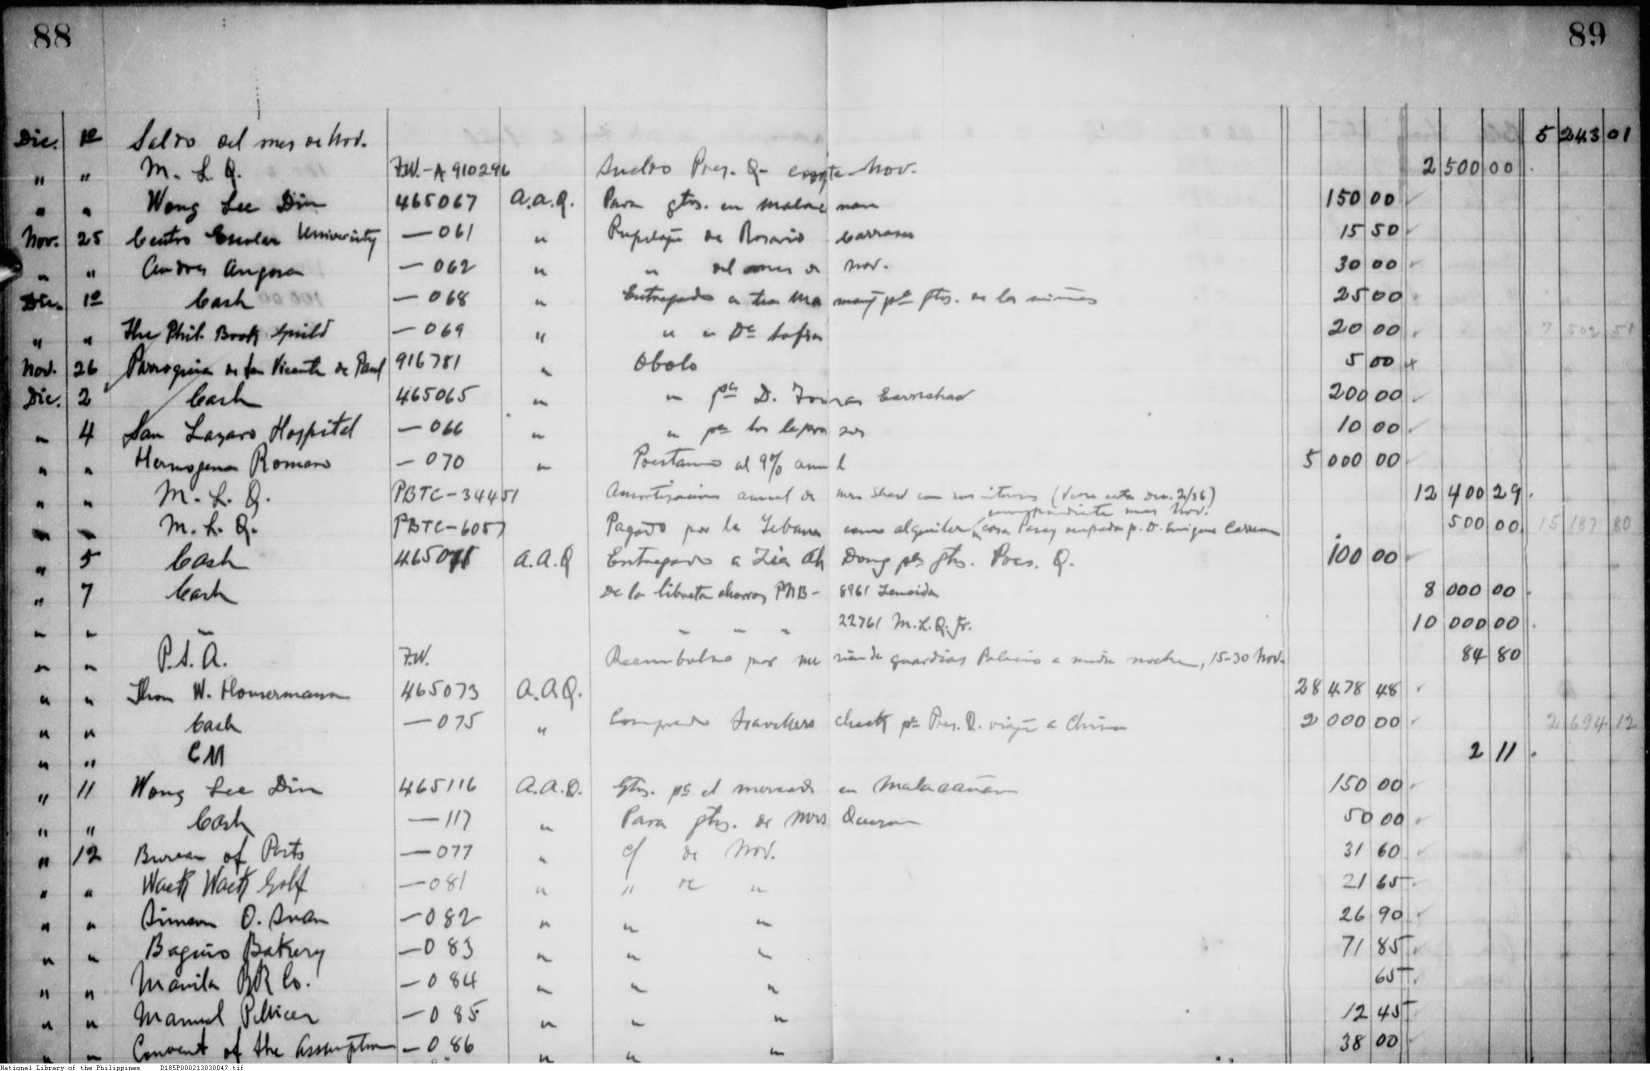 88 89
Dic. 1º Saldo del mes de Nov. 5 243 01
" " M. L. Q. F.W.-A 910296 Sueldo Pres. Q- Nov. 2 500 00
" " Wong Lee Din 465067 A.A.Q. Para gtos. en 150 00
Nov. 25 Centro Escolar University — 061 " de Rosario Carrasco 15 50
" " Andres Angara — 062 " " del mes de Nov. 30 00
Dic. 1º Cash — 068 " Entregado a pª gtos. de las niñas 25 00
" " The Phil. Book Guild — 069 " " " 20 00 7 502 51
Nov. 26 Parroquia de San Vicente de Paul 916781 " Obolo 5 00
Dic. 2 Cash 465065 " " pª D. 200 00
" 4 San Lazaro Hospital — 066 " " pª los leprosos 10 00
" " Romero — 070 " Prestamo al 9% anual 5 000 00
" " M. L. Q. PBTC-34451 Amortizacion anual de con sus intereses 12 400 29
correspondiente mes Nov.
" " M. L. Q. PBTC-6057 Pagado por la como alquiler casa Pasay ocupada p. D. Enrique 500 00 15 187 80
" 5 Cash A.A.Q Entregado a Ah Dong pª gtos. Pres. Q. 100 00
" 7 Cash De la libreta ahorros PNB- 8961 Zeneida 8 000 00
" " " " " " 22761 M.L.Q. Jr. 10 000 00
" " P.S.A. F.W. Reembolso por de guardias Palacio a media noche, 15-30 Nov. 84 80
" " W. 465073 A.A.Q. 28 478 48
" " Cash — 075 " Comprado travelers checks pª Pres. Q. viaje a China 2 000 00 2 694 12
" " CM 2 11
" 11 Wong Lee Din 465116 A.A.Q. Gtos. pª el mercado en Malacañan 150 00
" " Cash — 117 " Para gtos. de Mrs Quezon 50 00
" 12 Bureau of Posts — 077 " c/ de Nov. 31 60
" " Wack Wack Golf — 081 " " de " 21 65
" " O. — 082 " " " 26 90
" " Baguio Bakery — 083 " " " 71 85
" " Manila RR Co. — 084 " " " 65
" " Manuel Pellicer — 085 " " " 12 45
" " Convent of the Assumption — 086 " " " 38 00
National Library of the Philippines D185P000213030047.tif